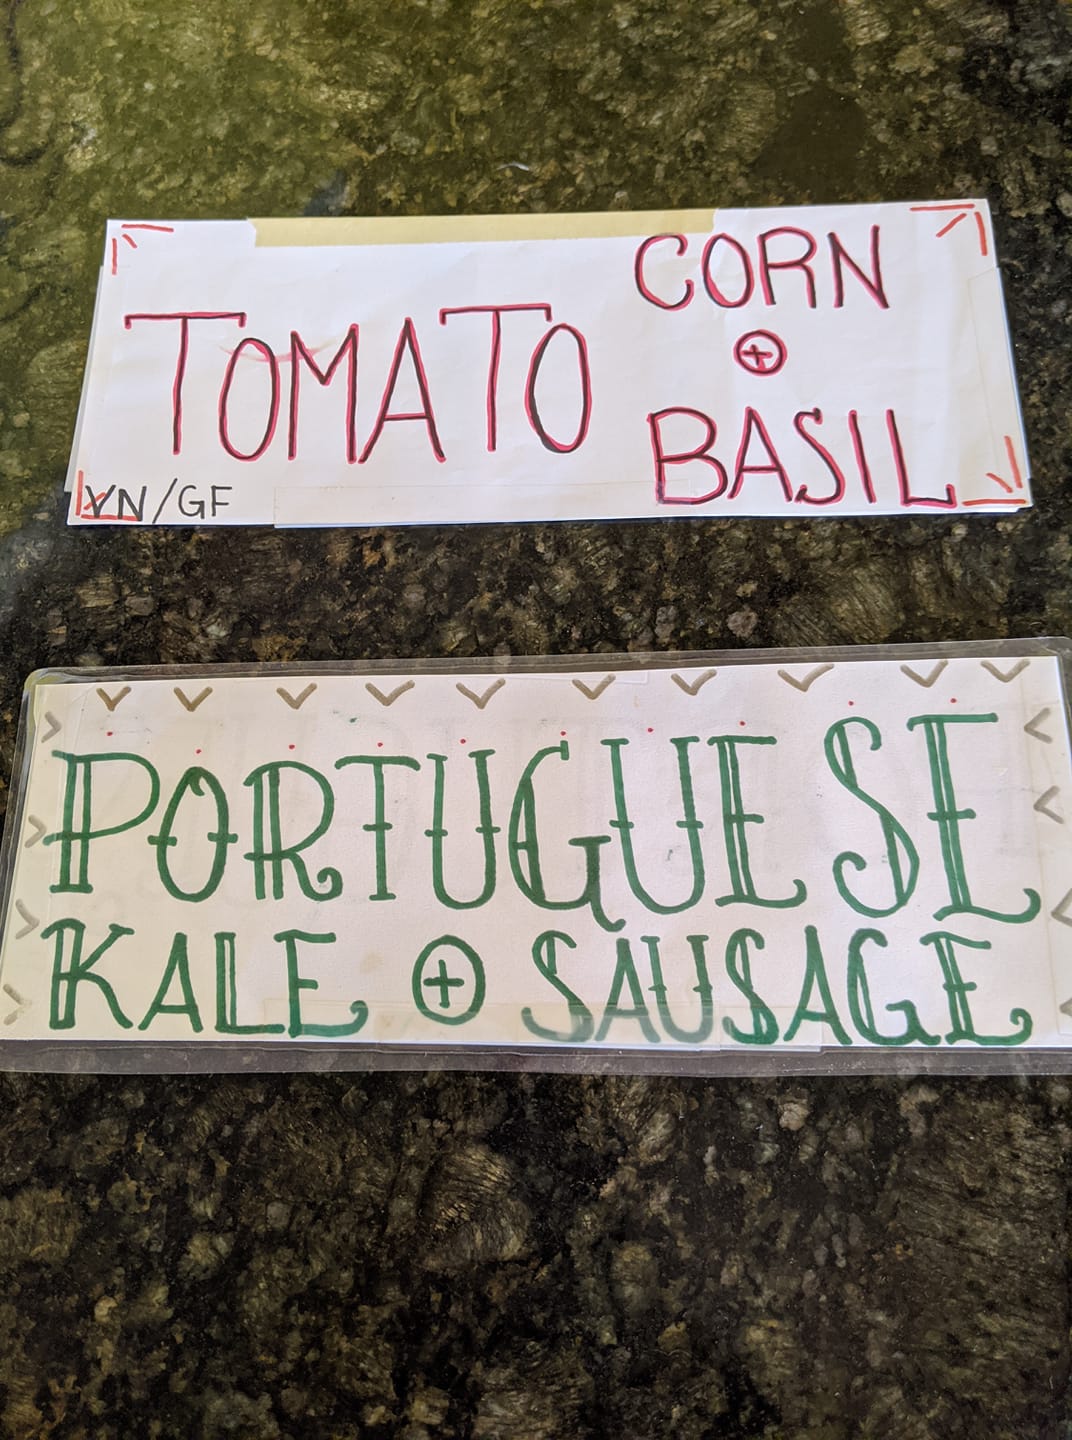 TOMATO
CORN
+
BASIL
VN/GF
PORTUGUESE
KALE + SAUSAGE